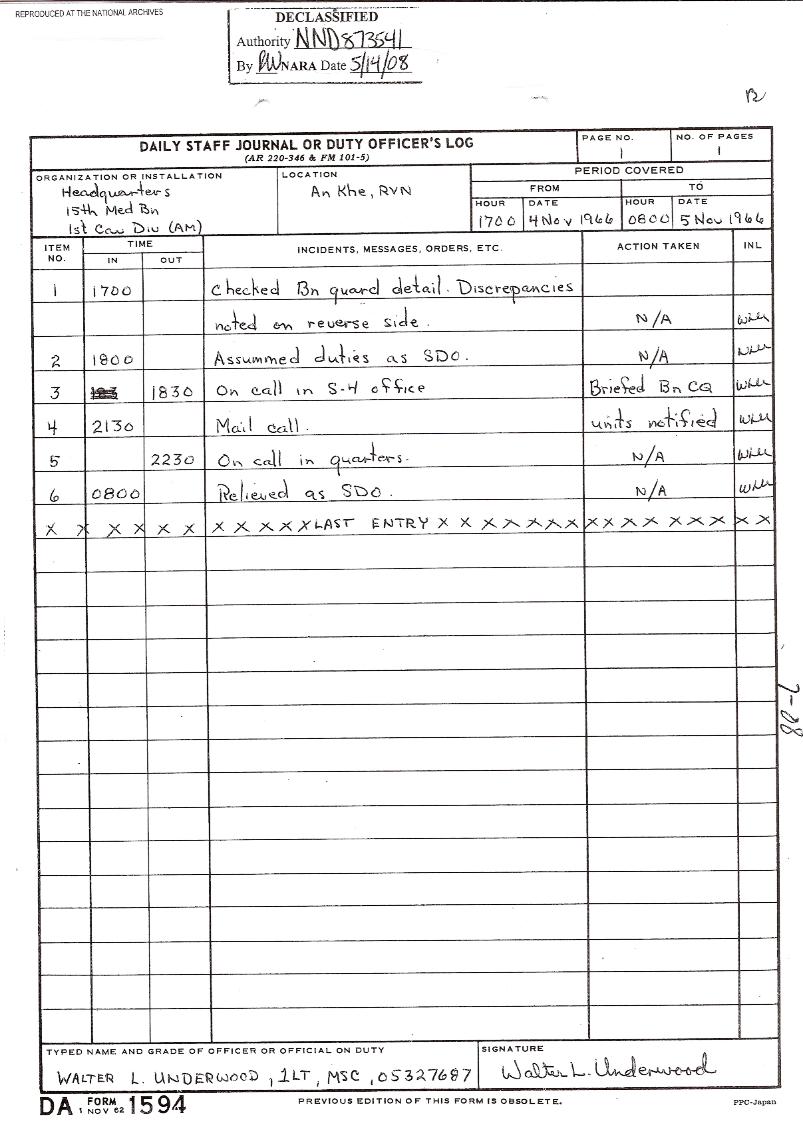 REPRODUCED AT THE NATIONAL ARCHIVES
DECLASSIFIED
Authority NND873541
By NARA Date 5/14/08
DAILY STAFF JOURNAL OR DUTY OFFICER'S LOG
(AR 220-346 & FM 101-5)
PAGE NO.
1
NO. OF PAGES
1
ORGANIZATION OR INSTALLATION
Headquarters
15th Med Bn
1st Cav Div (AM)
LOCATION
An Khe, RVN
PERIOD COVERED
FROM TO
HOUR DATE HOUR DATE
1700 4 Nov 1966 0800 5 Nov 1966
ITEM NO. TIME IN OUT INCIDENTS, MESSAGES, ORDERS, ETC. ACTION TAKEN INL
1 1700 Checked Bn guard detail. Discrepancies
noted on reverse side. N/A WLU
2 1800 Assummed duties as SDO. N/A WLU
3 1830 On call in S-4 office Briefed Bn CQ WLU
4 2130 Mail call. units notified WLU
5 2230 On call in quarters. N/A WLU
6 0800 Relieved as SDO. N/A WLU
X X X X X X X X X X X X LAST ENTRY X X X X X X X X X X X X X X X X
7-08
TYPED NAME AND GRADE OF OFFICER OR OFFICIAL ON DUTY
WALTER L. UNDERWOOD, 1LT, MSC, 05327687
SIGNATURE
Walter L. Underwood
DA FORM 1 NOV 62 1594
PREVIOUS EDITION OF THIS FORM IS OBSOLETE.
PPC-Japan